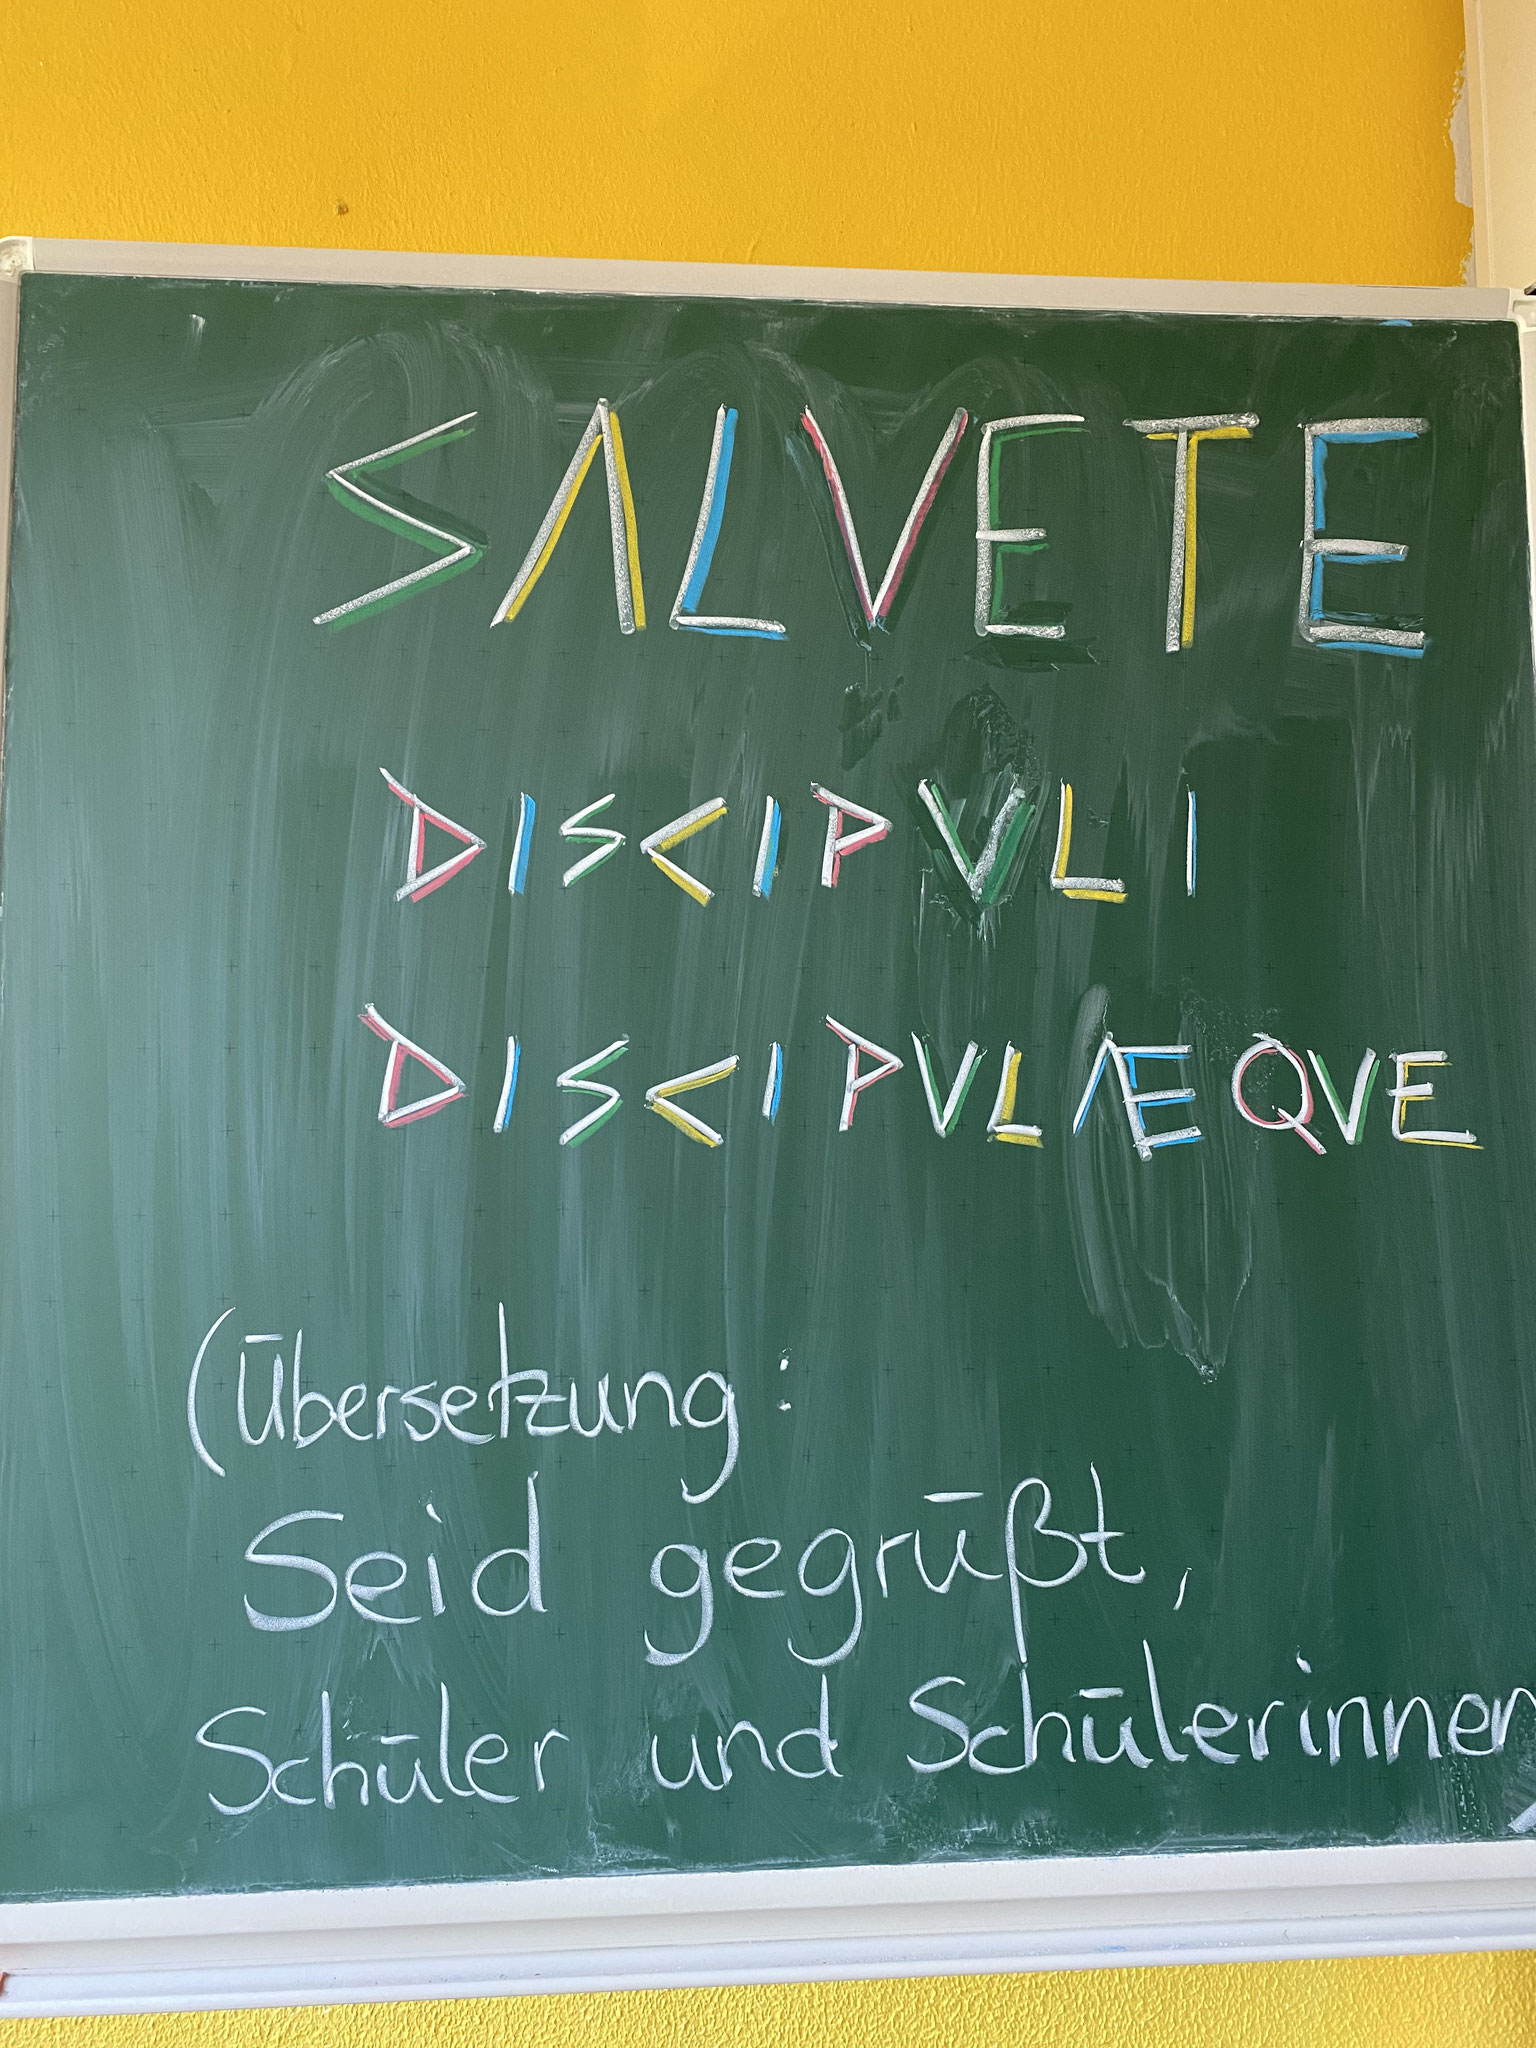 SALVETE
DISCIPVLI
DISCIPVLÆQVE
(Übersetzung:
Seid gegrüßt,
Schüler und Schülerinnen